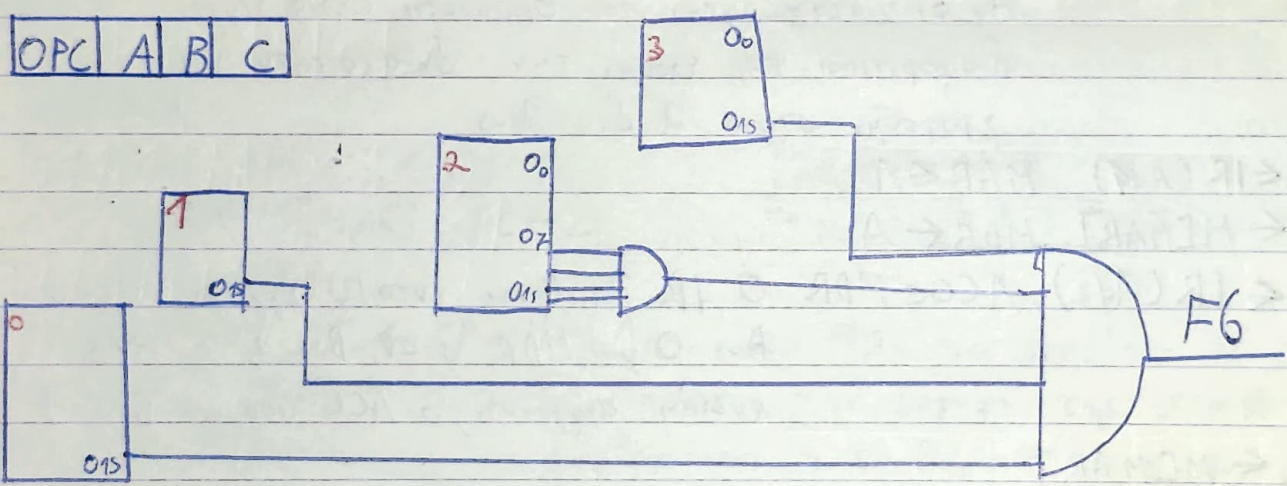 OPC A B C
3 O0
O15
2 O0
O7
O15
1
O15
0
O15
F6